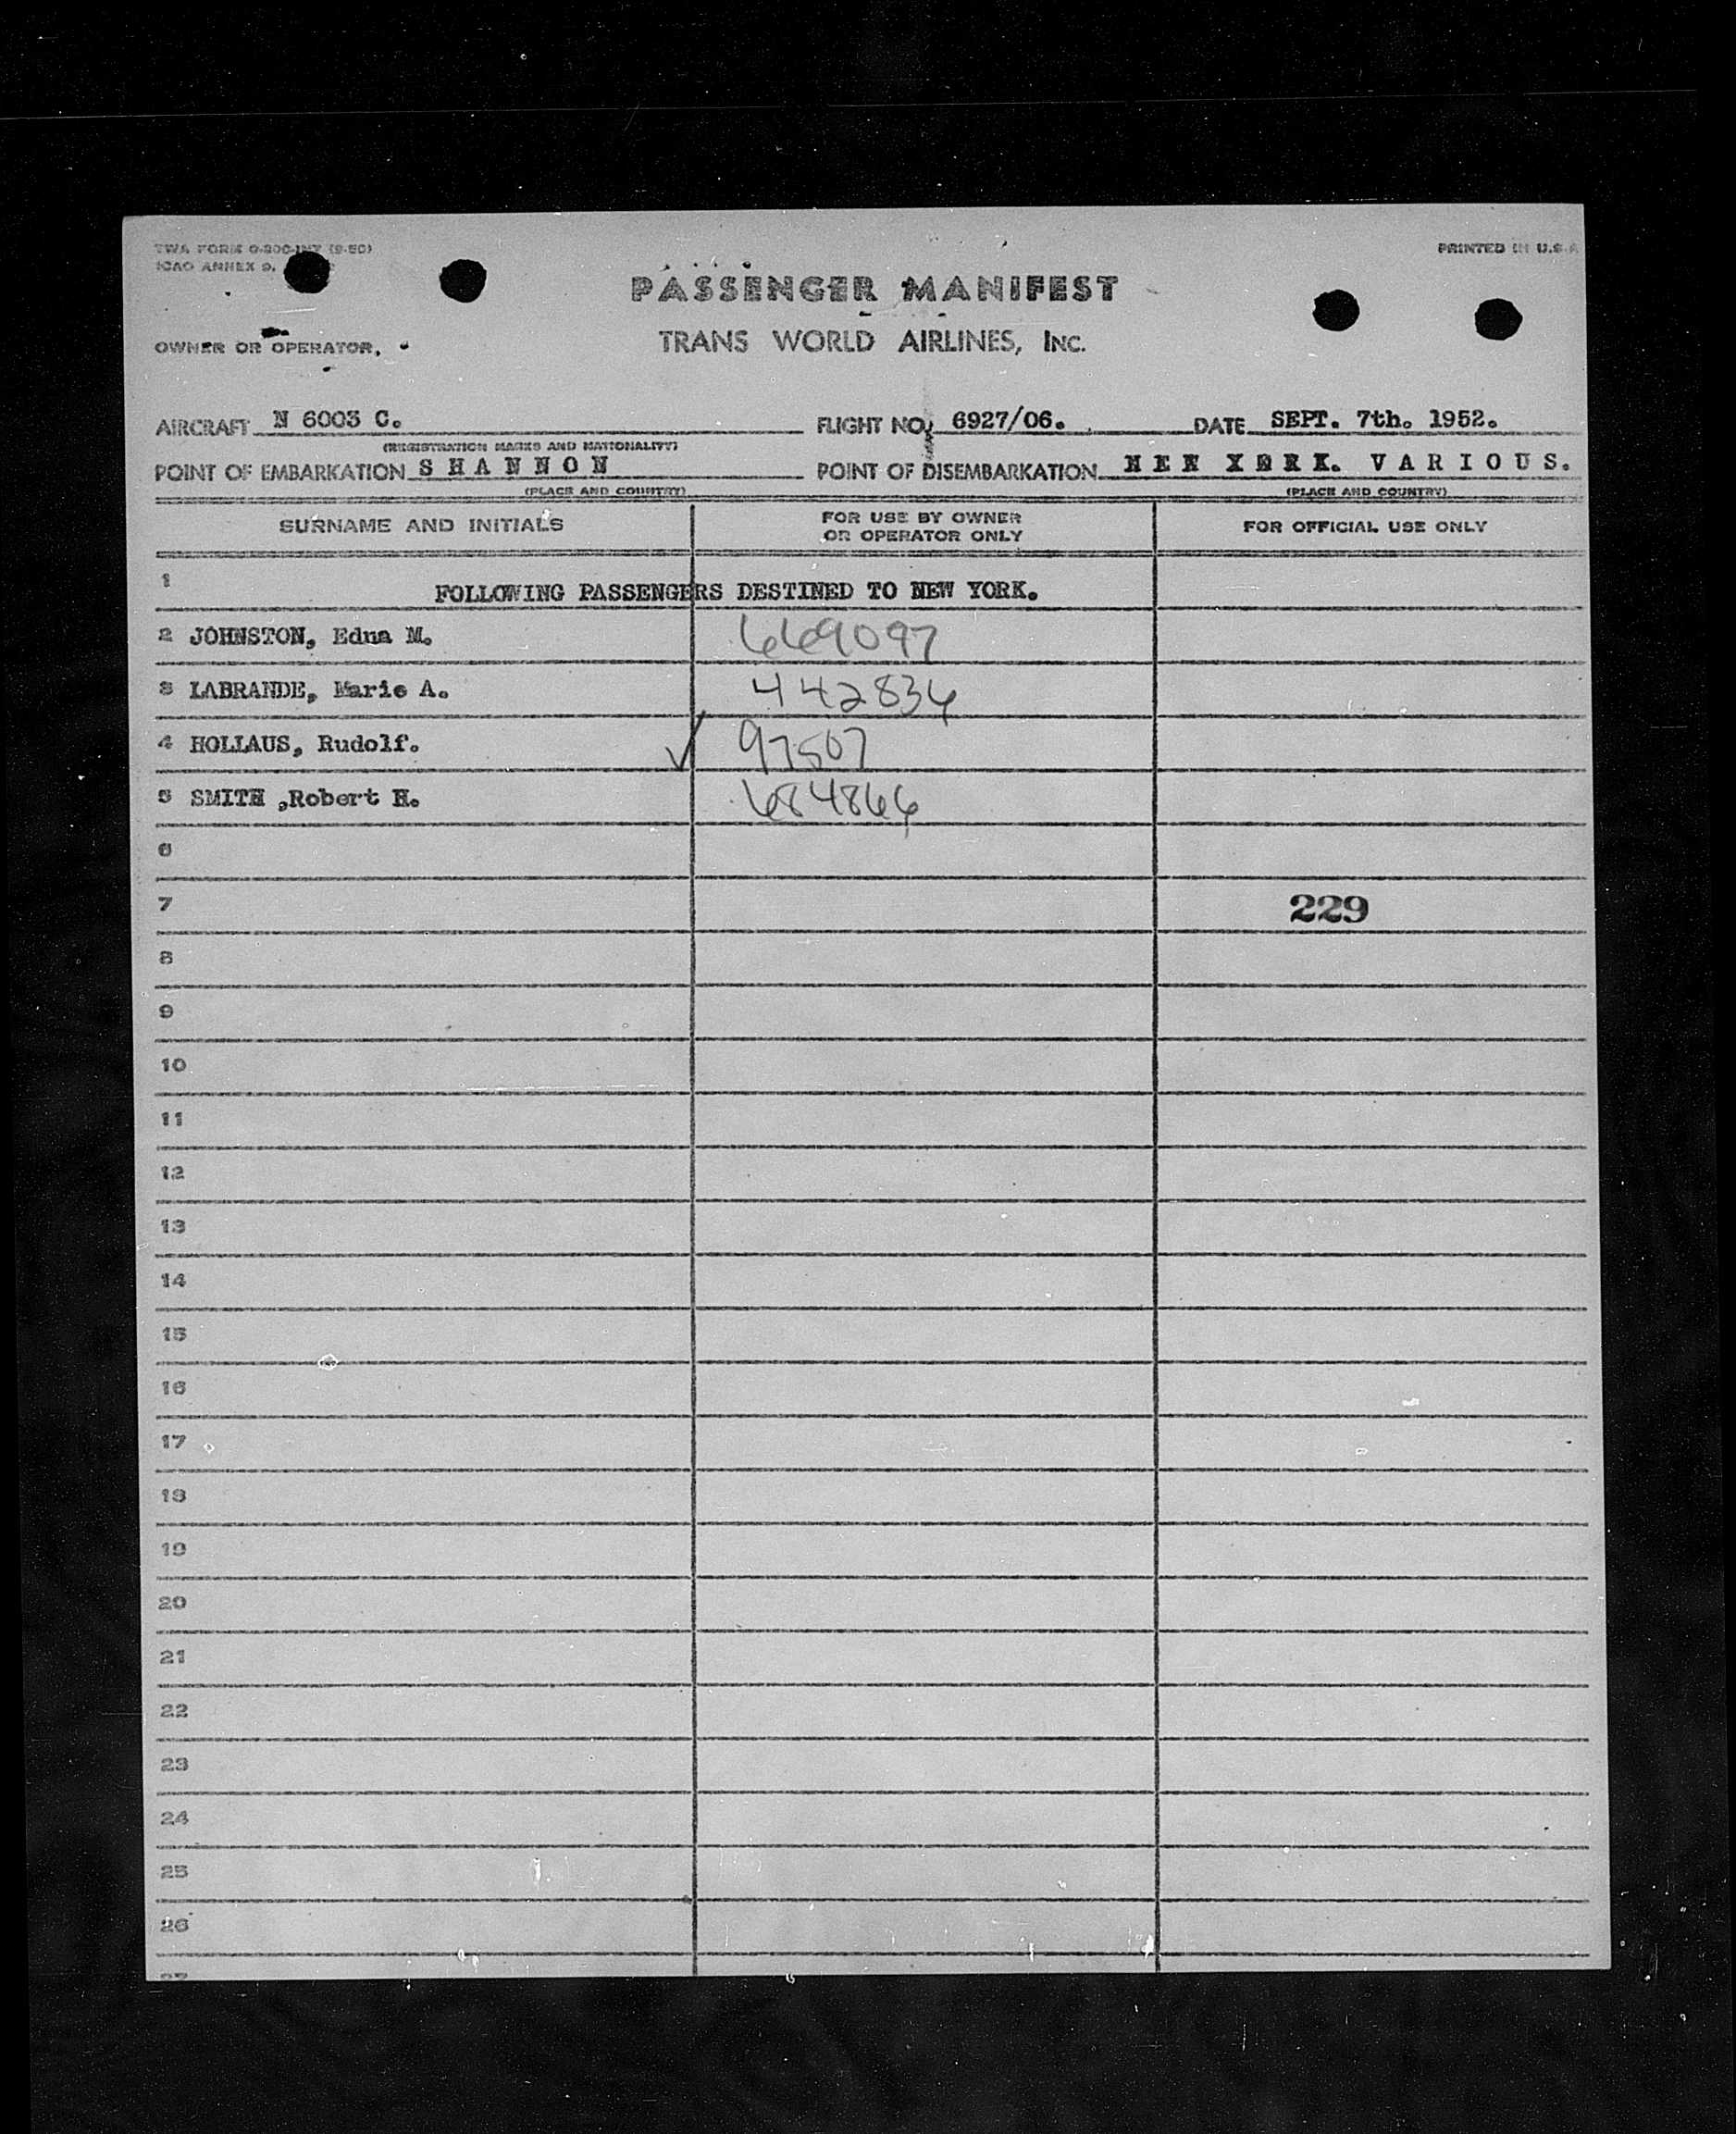 TWA FORM O-200-INT (9-50)
PRINTED IN U.S.A
ICAO ANNEX 9,
PASSENGER MANIFEST
OWNER OR OPERATOR, TRANS WORLD AIRLINES, INC.
AIRCRAFT N 6003 C. FLIGHT NO. 6927/06. DATE SEPT. 7th. 1952.
(REGISTRATION MARKS AND NATIONALITY)
POINT OF EMBARKATION S H A N N O N POINT OF DISEMBARKATION NEW YORK. V A R I O U S.
(PLACE AND COUNTRY) (PLACE AND COUNTRY)
SURNAME AND INITIALS FOR USE BY OWNER OR OPERATOR ONLY FOR OFFICIAL USE ONLY
1 FOLLOWING PASSENGERS DESTINED TO NEW YORK.
2 JOHNSTON, Edna M. 669097
3 LABRANDE, Marie A. 442836
4 HOLLAUS, Rudolf. ✓ 97507
5 SMITH ,Robert H. 684866
6
7 229
8
9
10
11
12
13
14
15
16
17
18
19
20
21
22
23
24
25
26